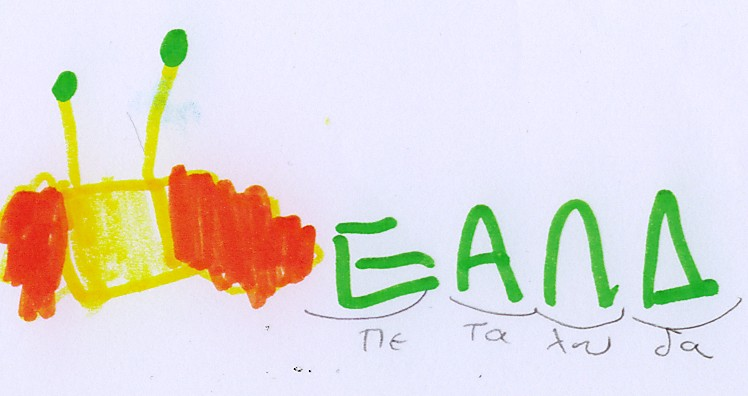 ΕΑΛΔ
πε τα λου δα